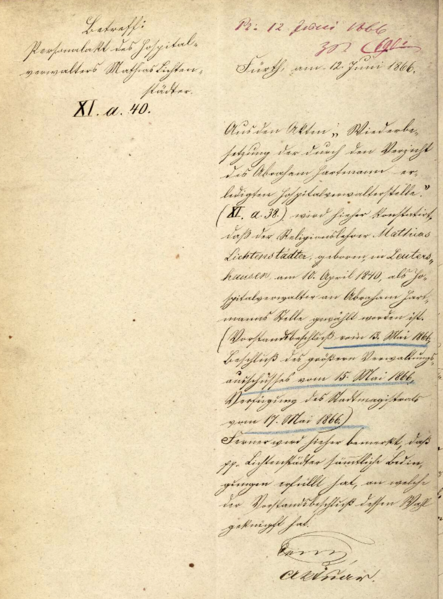 Betreff:
Personalakt des Hospital-
verwalters Mathias Lichten-
städter.
XI. a. 40.
Pr. 12 Juni 1866
Fürth, am 12. Juni 1866.
Aus den Akten „Wiederbe-
setzung der durch den Verzicht
des Abraham Hartmann er-
ledigten Hospitalverwalterstelle"
(XI. a. 38.) wird hieher konstatirt,
daß der Religionslehrer Mathias
Lichtenstädter, geboren in Leuters-
hausen, am 10. April 1840, als Ho-
spitalverwalter an Abraham Hart-
manns Stelle gewählt worden ist.
(Vorstandsbeschluß vom 13. Mai 1866,
Beschluß des größern Verwaltungs-
ausschusses vom 15. Mai 1866,
Verfügung des Stadtmagistrats
vom 17. Mai 1866.)
Ferner wird hieher bemerkt, daß
pp. Lichtenstädter sämtliche Bedin-
gungen erfüllt hat, an welche
der Vorstandsbeschluß dessen Wahl
geknüpft hat.
Aktuar.